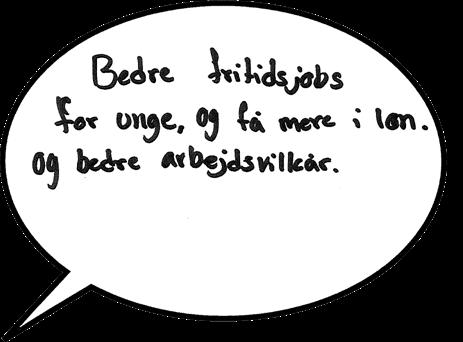 Bedre fritidsjobs
for unge, og få mere i løn.
og bedre arbejdsvilkår.